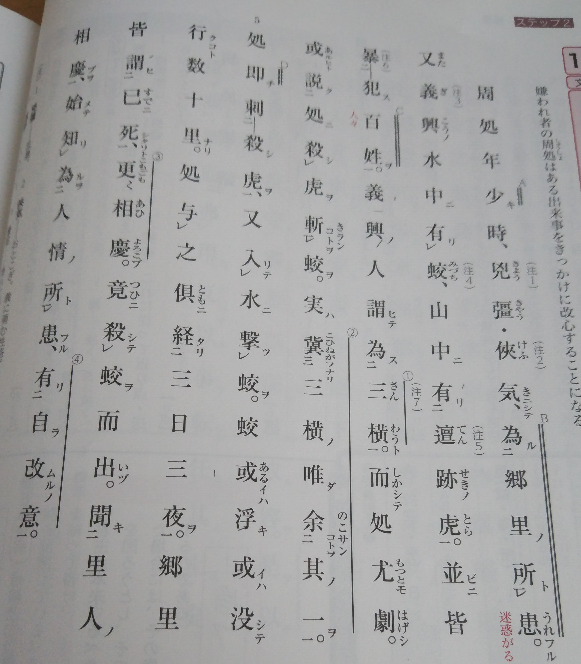 ステップ2
嫌われ者の周処はある出来事をきっかけに改心することになる
周処年少時、兇彊・俠気、為郷里所患。
迷惑がる
又義興水中有蛟、山中有邅跡虎。並皆
暴犯百姓。義興人謂為三横。而処尤劇。
或説処殺虎斬蛟。実冀三横唯余其一。
処即刺殺虎、又入水撃蛟。蛟或浮或没
行数十里。処与之俱経三日三夜。郷里
皆謂已死、更相慶。竟殺蛟而出。聞里人
相慶、始知為人情所患、有自改意。